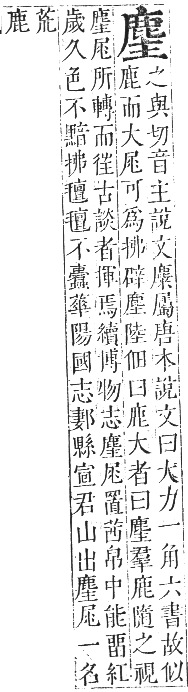 麈之與切音主說文麋屬唐本說文曰大力一角六書故似
鹿而大尾可為拂辟塵陸佃曰鹿大者曰麈羣鹿隨之視
麈尾所轉而徃古談者揮焉續博物志麈尾置茜帛中能畱紅
歲久色不黯拂氊氊不蠹華陽國志郪縣宜君山出麈尾一名
荒鹿